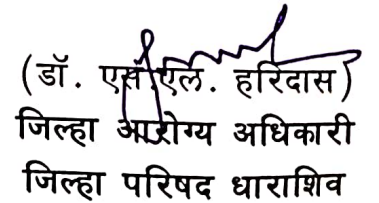 (डॉ. एस.एल. हरिदास)
जिल्हा आरोग्य अधिकारी
जिल्हा परिषद धाराशिव